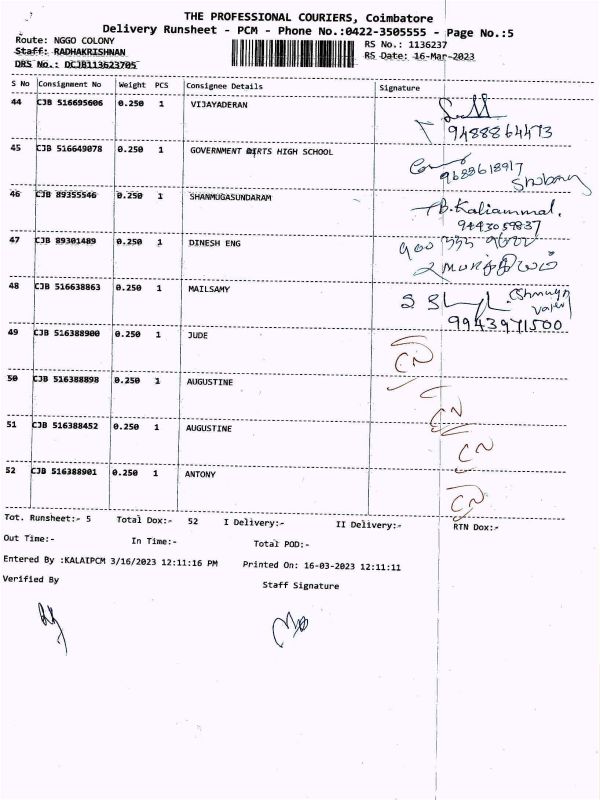 THE PROFESSIONAL COURIERS, Coimbatore
Delivery Runsheet - PCM - Phone No.:0422-3505555 - Page No.:5
Route: NGGO COLONY RS No.: 1136237
Staff: RADHAKRISHNAN RS Date: 16-Mar-2023
DRS No.: DCJB113623705
S No Consignment No Weight PCS Consignee Details Signature
44 CJB 516695606 0.250 1 VIJAYADERAN
9488864473
45 CJB 516649078 0.250 1 GOVERNMENT HIGH SCHOOL
9688618917
46 CJB 89355546 0.250 1 SHANMUGASUNDARAM B.Kaliammal.
9443059837
47 CJB 89301489 0.250 1 DINESH ENG
48 CJB 516638863 0.250 1 MAILSAMY
9943971500
49 CJB 516388900 0.250 1 JUDE
CN
50 CJB 516388898 0.250 1 AUGUSTINE
CN
51 CJB 516388452 0.250 1 AUGUSTINE
CN
52 CJB 516388901 0.250 1 ANTONY
CN
Tot. Runsheet:- 5 Total Dox:- 52 I Delivery:- II Delivery:- RTN Dox:-
Out Time:- In Time:- Total POD:-
Entered By :KALAIPCM 3/16/2023 12:11:16 PM Printed On: 16-03-2023 12:11:11
Verified By Staff Signature